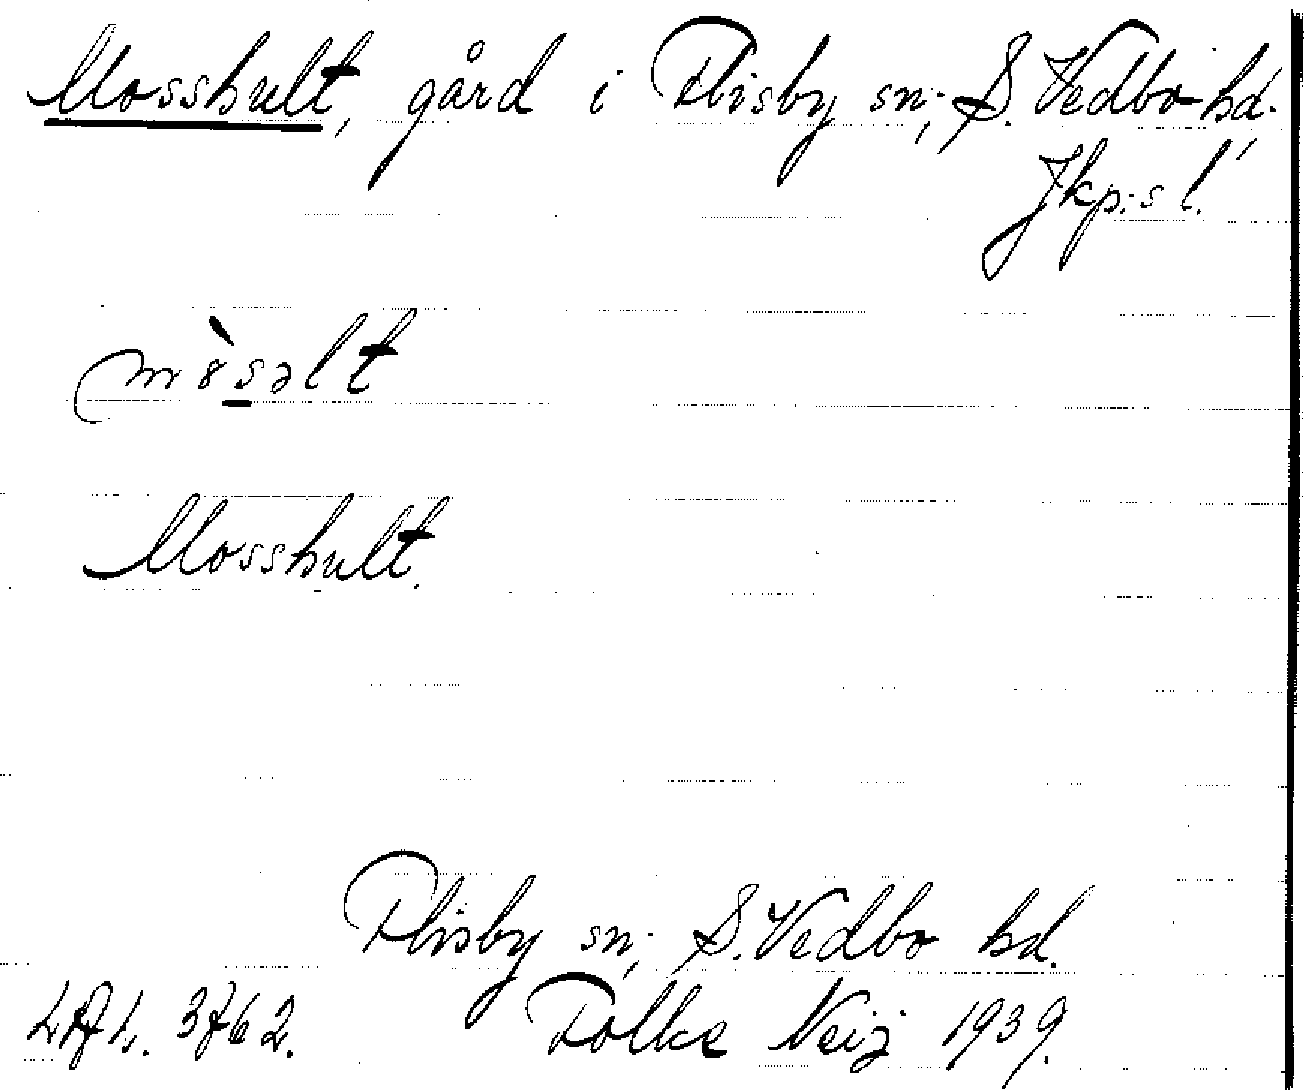 Mosshult, gård i Flisby sn; S. Vedbo hd.
Jkp:s l.
Mosshult.
Flisby sn; S. Vedbo hd.
3762. Folke Neij 1939.